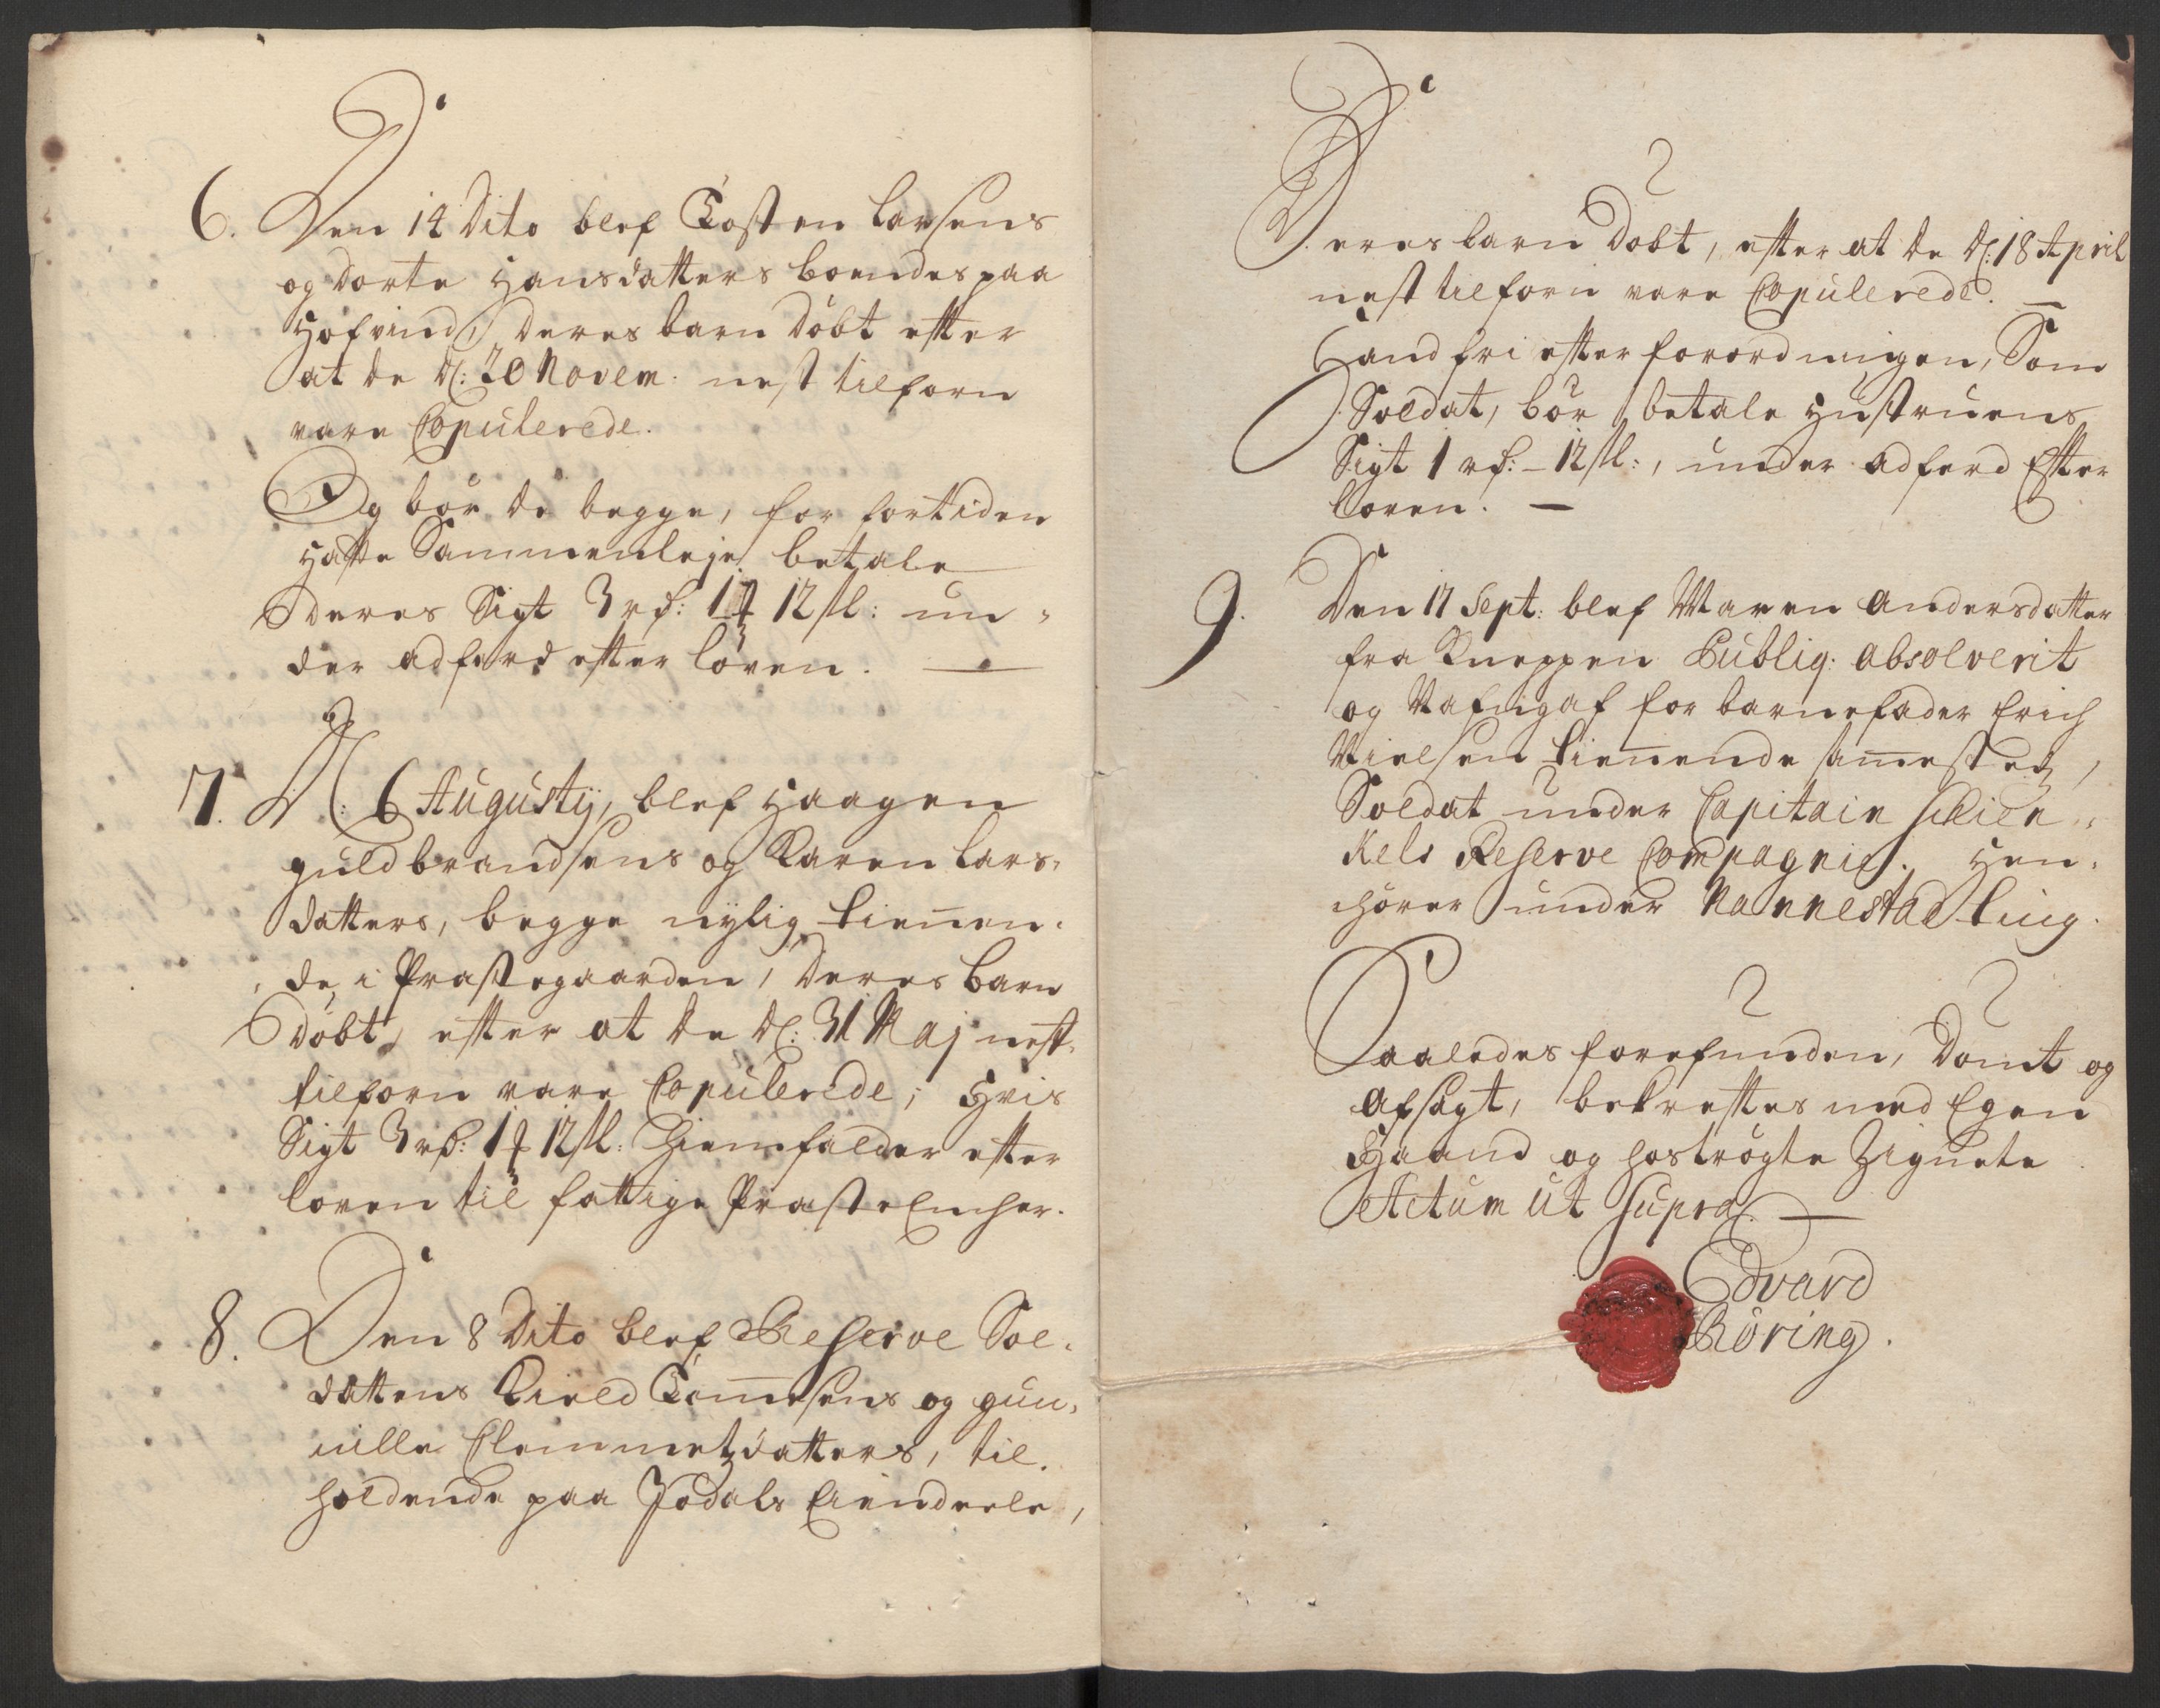 6. Den 14 Dito blef Tosten Larsens
og Dorte Hansdatters boendes paa
Hofvind, deres barn döbt efter
at de d: 20 Novem: nest tilforn
vare Copulerede.
Og bör de begge, for fortiden
hafte Sammenleje betale
deres Sigt 3 rd: 1 12 sl: un-
der adferd efter loven.
7. D: 6 Augustÿ, blef Haagen
guldbrandsens og Karen Lars-
datters, begge nylig tienen-
de i Præstegaarden, deres barn
döbt, efter at de d: 31 Maj nest
tilforn vare Copulerede; Hvis
Sigt 3 rd: 1 12 sl: hiemfalder efter
loven til fattige Præste Encher.
8. Den 8 Dito blef Reserve Sol-
dattens Kield Tom̄esens og gun-
nille Clemmetzdatters, til-
holdende paa Jödals Eiendeele,
Deres barn döbt, efter at de d: 18 April
nest tilforn vare Copulerede.
Hand fri efter forordningen, Som
Soldat, bör betale Hustruens
Sigt 1 rd: - 12 sl:, under adferd Efter
loven.
9. Den 17 Sept: blef Maren Andersdatter
fra Kneppen Publiq: absolverit
og Nafngaf for barnefader Erich
Nielsen tien̄ende sam̄ested,
Soldat under Capitain
Reserve Compagnie. Hen-
hörer under Nannestad ting.
Saaledes forefunden, Dömt og
afsagt, bekreftes med Egen
Haand og hoströgte Zignete
Actum ut Supra.
Edvard
Röring.